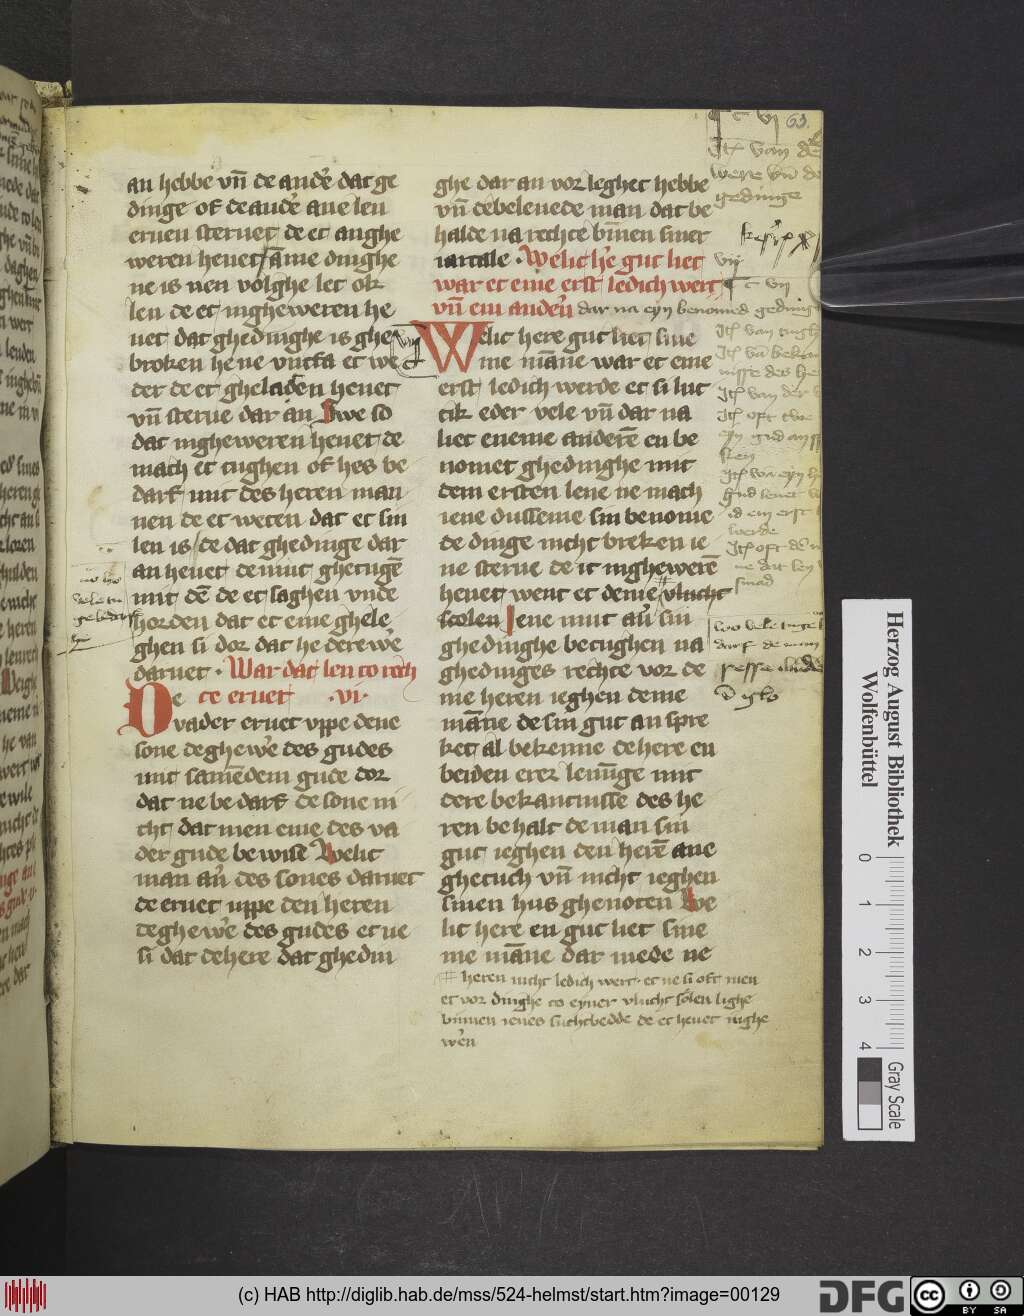 an hebbe vn̄ de andē dat ge
dinge of de andē ane len
eruen steruet de et anghe
weren heuet sāme dinghe
ne is nen volghe let ok
len de et ingheweren he
uet dat ghedinghe is ghe
broken he ne untfa et we
der de et gheladen heuet
vn̄ sterue dar an Swe so
dat ingheweren heuet de
mach et tughen of hes be
darf mit des heren man
nen de et weten dat et sin
len is de dat ghedinge dar
an heuet de mut ghetugē
mit dē de et saghen unde
horden dat et eme ghele
ghen si dor dat he derewē
daruet . War dat len to rech
te eruet .vi.
De
vader eruet vppe dene
sone de ghewē des gudes
mit samēdem gude dor
dat ne bedarf de sone ni
cht dat men eme des va
der gude bewise Welic
man an̄ des sones daruet
de eruet vppe den heren
de ghewē des gudes et ne
si dat de here dat ghedin
ghe dar an vorleghet hebbe
vn̄ de beleuede man dat be
halde na rechte bīnen siner
iartale . Welic hē gut liet
war et eme erst ledich wert
vn̄ ein anderē dar na eyn benomed geding
Welic here gut liet sine
me māne war et eme
erst ledich werde et si lut
tik eder vele vn̄ dar na
liet eneme anderē en be
nomet ghedinghe mit
dem ersten lene ne mach
iene dusseme sin benome
de dinge nicht breken ie
ne sterue de it ingheuerē
heuet went et deme vlucht
scolen Jene mut au̅ sin
ghedinghe betughen na
ghedinges rechte vor de
me heren ieghen deme
māne de sin gut an spre
ket al bekenne de here en
beiden erer lenūge mit
dere bekantnisse des he
ren behalt de man sin
gut ieghen den herē ane
ghetuch vn̄ nicht ieghen
sinen husghenoten We
lic here en gut liet sine
me māne dar mede ne
heren nicht ledich wert . et ne si oft men
et vor dinghe to eyner vlucht solen lighe
binnen ienes suchtbedde de et heuet inghe
wēn
63.
weren vn̄ de
gedinge
vij
c vij
gelediget
Herzog August Bibliothek
Wolfenbüttel
0 1 2 3 4
Gray Scale
(c) HAB http://diglib.hab.de/mss/524-helmst/start.htm?image=00129
DFG
cc BY SA